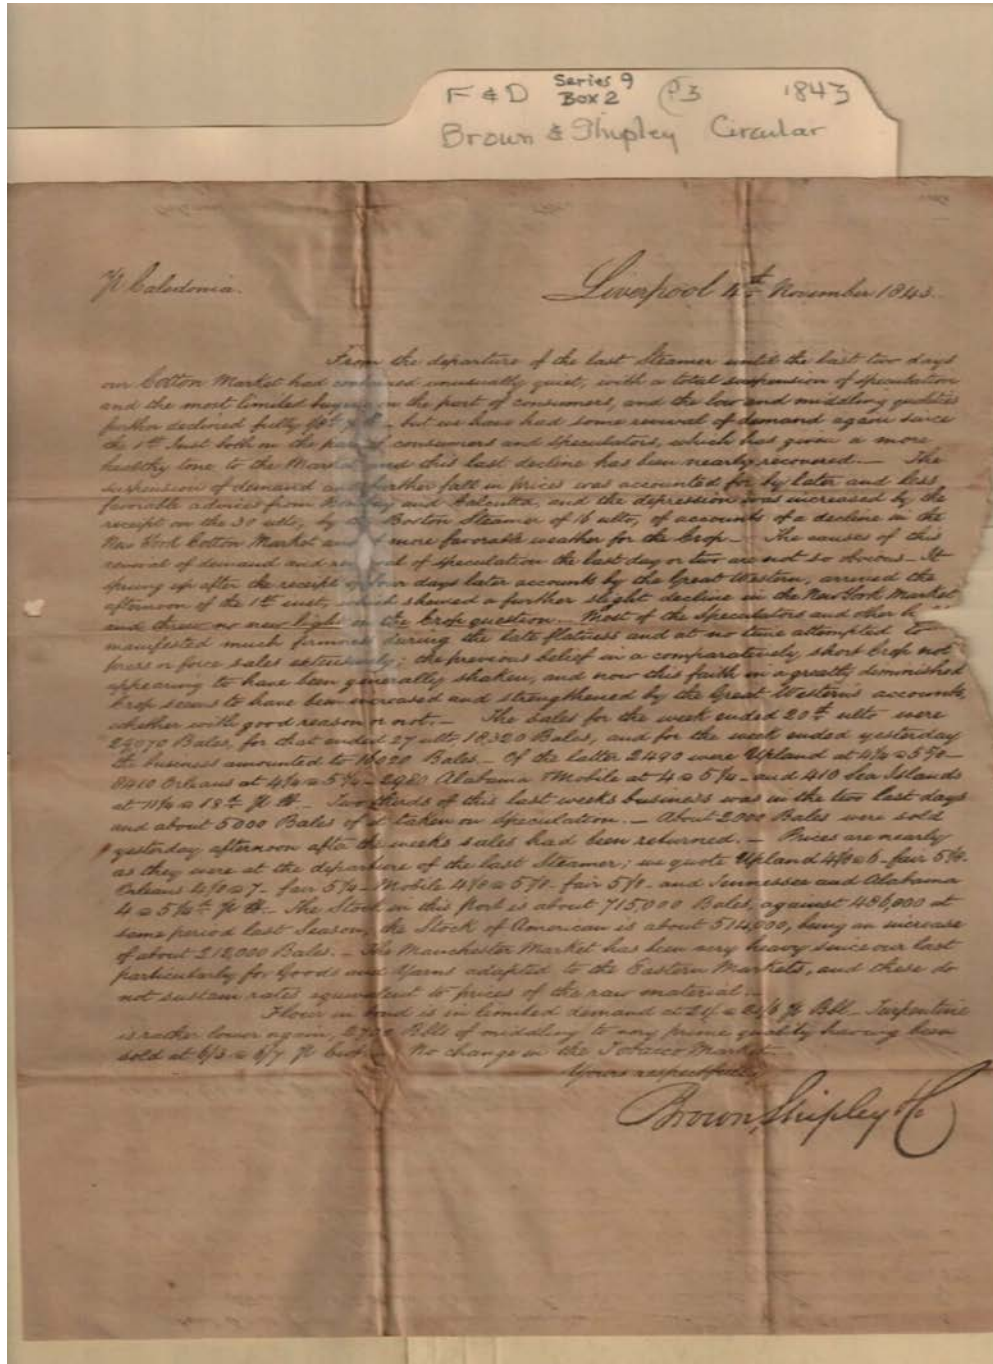 F & D Series 9 Box 2 P3 1843
Brown & Shipley Circular
Pr Caledonia.
Liverpool 4th November 1843.
From the departure of the last Steamer until the last two days
our Cotton Market had continued unusually quiet, with a total suspension of speculation
and the most limited buying on the part of consumers, and the low and middling qualities
further declined fully but we have had some revival of demand again since
the 1st Inst both on the part of consumers and speculators, which has given a more
healthy tone to the Market and this last decline has been nearly recovered.— The
suspension of demand and further fall in prices was accounted for by later and less
favorable advices from and Calcutta, and the depression was increased by the
receipt on the 30 ulto, by the Boston Steamer of 16 ulto, of accounts of a decline in the
New York Cotton Market and of more favorable weather for the Crop.— The causes of this
renewal of demand and revival of speculation the last day or two are not so obvious.— It
sprung up after the receipt of four days later accounts by the Great Western, arrived the
afternoon of the 1st inst, which shewed a further slight decline in the New York Market
and threw no new light on the Crop question.— Most of the Speculators and other
manifested much firmness during the late flatness and at no time attempted to
press or force sales extensively; the previous belief in a comparatively short Crop not
appearing to have been generally shaken, and now this faith in a greatly diminished
Crop seems to have been increased and strengthened by the Great Western's accounts,
whether with good reason or not.— The sales for the week ended 20th ulto were
Bales, for that ended 27 ulto, 18,320 Bales, and for the week ended yesterday
the business amounted to Bales.— Of the latter 2490 were Upland at
8410 Orleans at Alabama & Mobile at and 410 Sea Islands
at Two thirds of this last weeks business was in the two last days
and about 5000 Bales of it taken on speculation.— About 2000 Bales were sold
yesterday afternoon after the weeks sales had been returned.— Prices are nearly
as they were at the departure of the last Steamer; we quote Upland fair
Orleans fair Mobile fair and Tennessee and Alabama
The Stock in this Port is about 715,000 Bales, against 486,000 at
same period last Season, the Stock of American is about 514,000, being an increase
of about 212,000 Bales.— The Manchester Market has been very heavy since our last
particularly for Goods and Yarns adapted to the Eastern Markets, and these do
not sustain rates equivalent to prices of the raw material.—
Flour in bond is in limited demand at Bbl.— Turpentine
is rather lower again, Bbls of middling to very prime quality having been
sold at No change in the Tobacco Market.
Yours respectfully
Brown, Shipley & Co